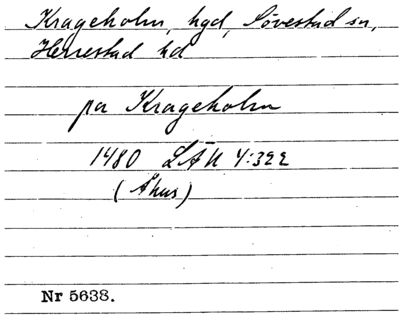 Krageholm, hgd, Sövestad sn,
Herrestad hd
pa Krageholm
1480 LÄU 4:322
(Åhus)
Nr 5638.